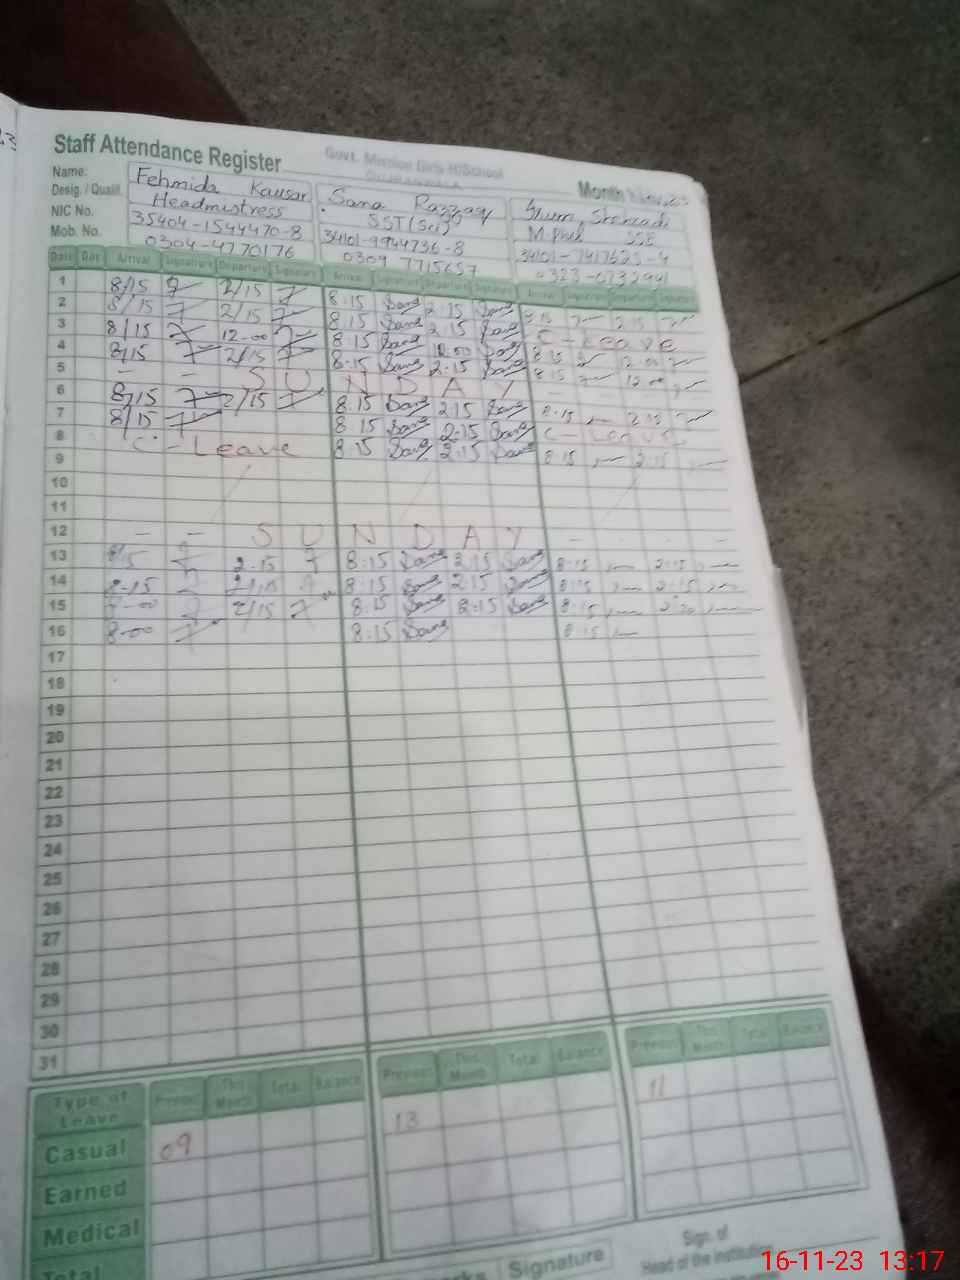 Staff Attendance Register
Govt. Mission Girls H/School
Month Nov, 23
Name: Fehmida Kausar Sana Razzaq
Desig. / Qualif. Headmistress SST (Sci) M.Phil SSE
NIC No. 35404-1544470-8 34101-9944736-8
Mob. No. 0304-4770176 0304 7715657
Date Arrival Signature Departure Signature Arrival Signature Departure Signature Arrival Signature Departure Signature
1 8/15 2/15 8:15 Sana 2:15 Sana 8:15 2:15
2 8/15 2/15 8:15 Sana 2:15 Sana C-Leave
3 8/15 12-00 8:15 Sana 12:00 Sana 8:15 12:00
4 8/15 2/15 8:15 Sana 2:15 Sana 8:15 12:00
5 - - S U N D A Y
6 8/15 2/15 8:15 Sana 2:15 Sana 8:15 2:15
7 8/15 8:15 Sana 2:15 Sana C-Leave
8 C-Leave 8:15 Sana 2:15 Sana 8:15 2:15
9
10
11
12 - - S U N D A Y - - - -
13 2-15 8:15 Sana 2:15 Sana 8:15 2:15
14 8-15 2/15 8:15 Sana 2:15 Sana 8:15 2:15
15 2/15 8:15 Sana Sana 8:15
16 8-00 8:15 Sana 8:15
17
18
19
20
21
22
23
24
25
26
27
28
29
30
31
Type of Leave Previous This Month Total Balance Previous This Month Total Balance Previous This Month Total Balance
Casual 09 13 11
Earned
Medical
Total
Signature
Sign. of
Head of the Institution
16-11-23 13:17